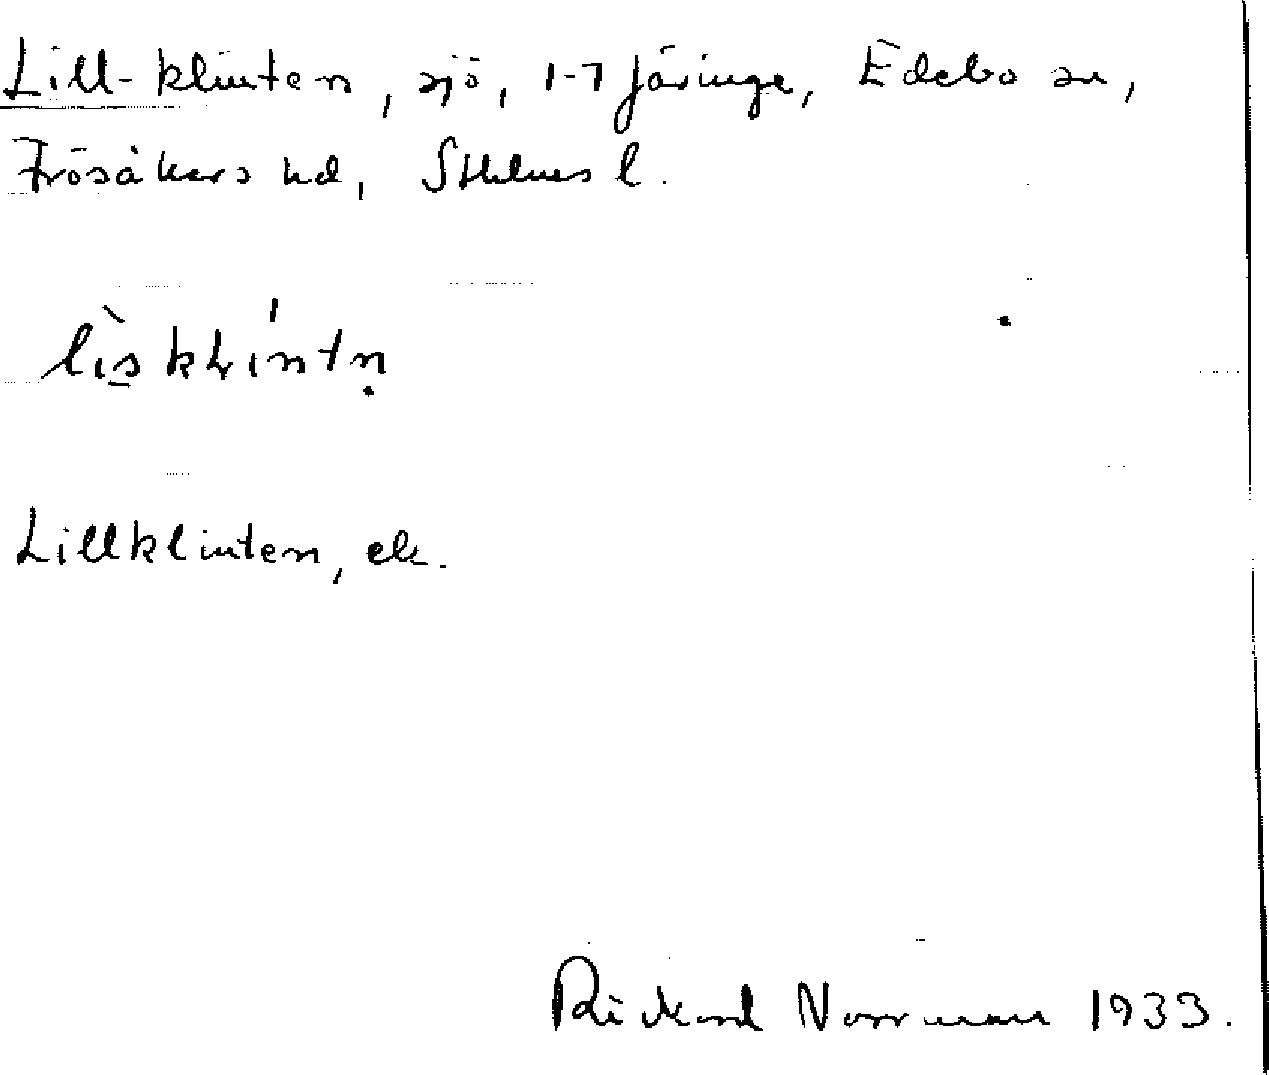 Lill-klinten, sjö, 1-7 Järinge, Edebo sn,
Frösåkers hd, Sthlms l.
Lillklinten, ek.
Rickard Norrman 1933.